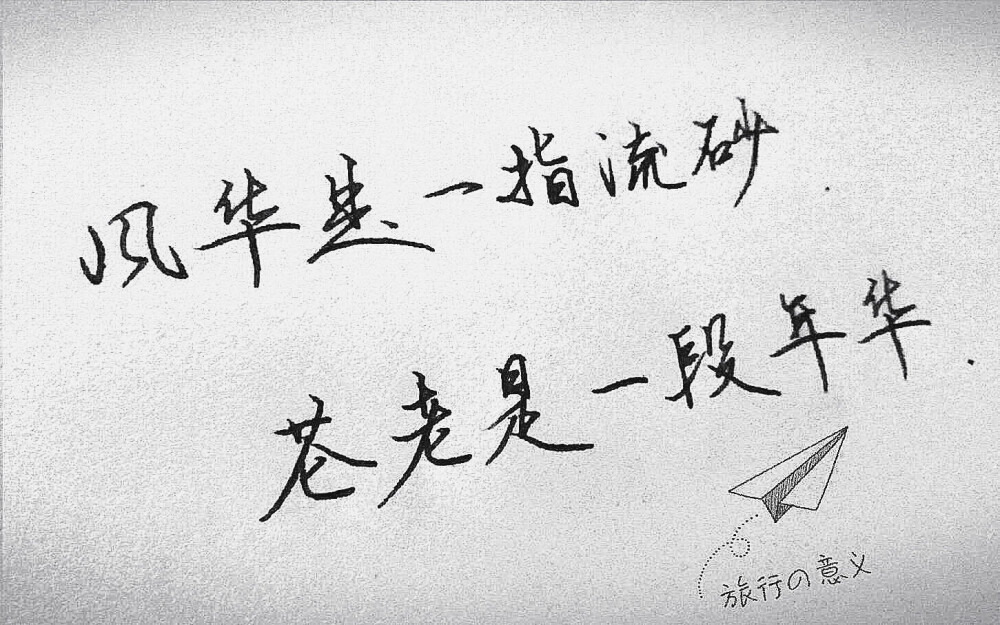 风华是一指流砂.
苍老是一段年华.
旅行の意义